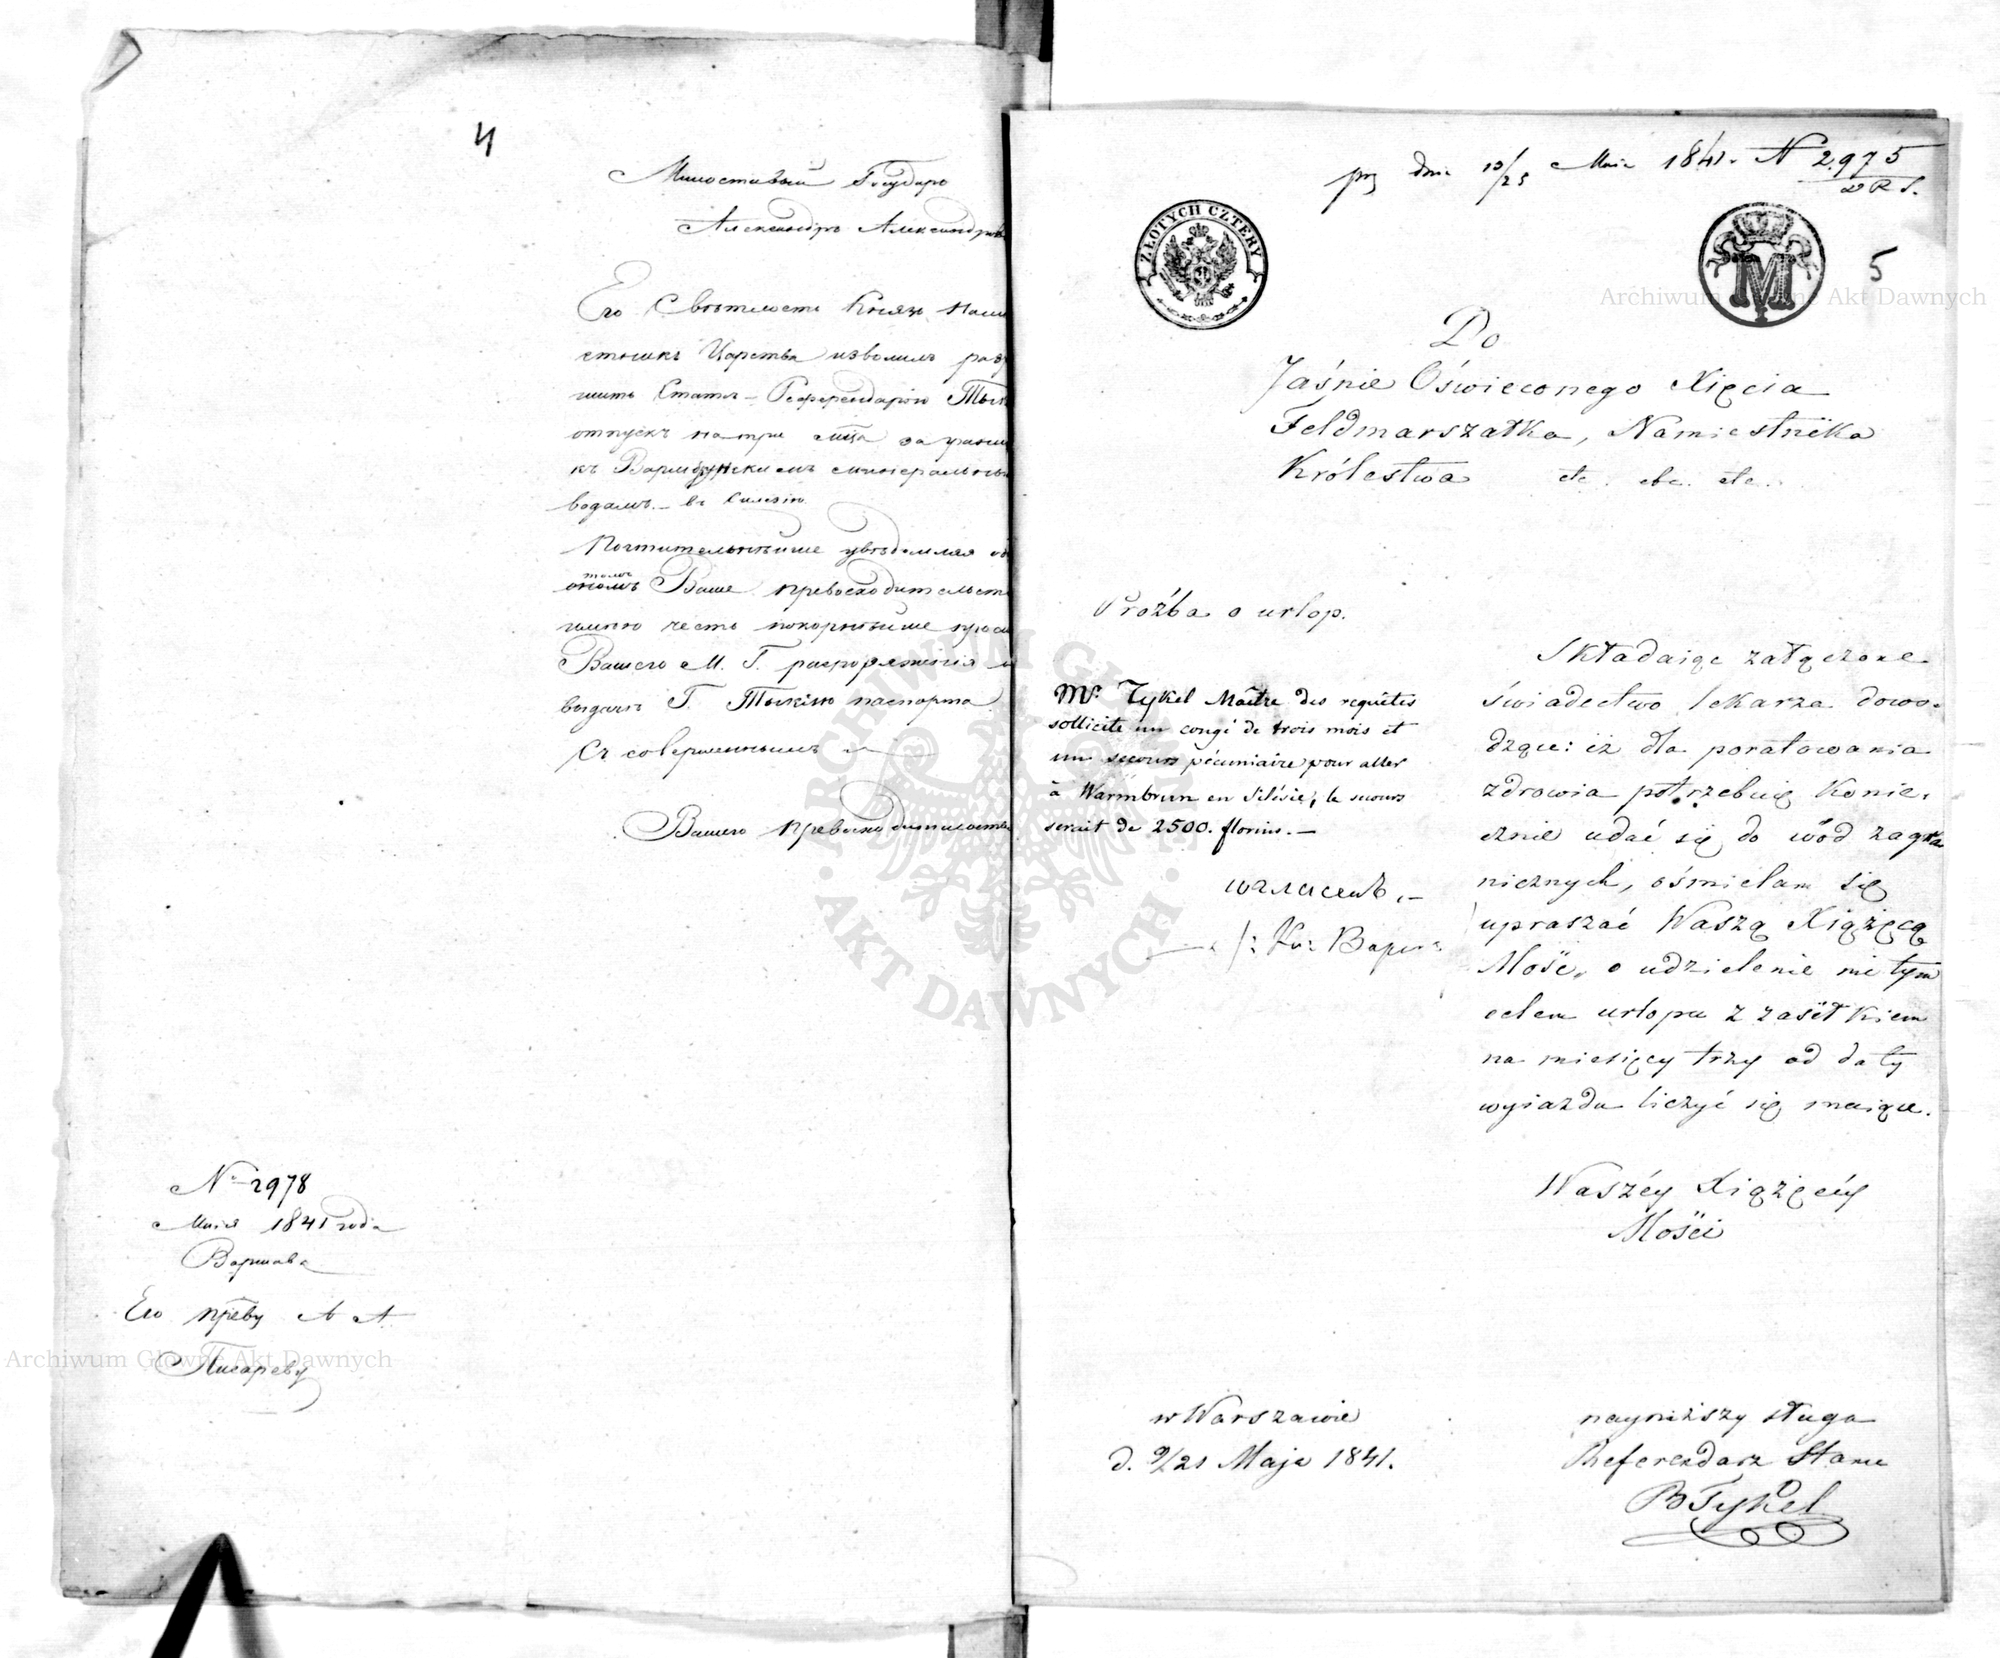 4
Милостивый Государь
Александръ Александров
Его Свѣтлость Князь Наме
стникъ Царства изволилъ раз
шить Статсъ-Референдарію Тык
отпускъ на три мца за грани
къ Вармбрунскимъ минеральны
водамъ - въ Силезію.
Почтительнѣйше увѣдомляя об
томъ Ваше Превосходительст
имѣю честь покорнѣйше проси
Вашего М. Г. распоряженія о
выдачѣ Г. Тыкелю паспорта
Съ совершеннымъ
Вашего Превосходительства
№ 2978
Маія 1841 года
Варшава
Его Прев͞у А А
Писареву
prz dnia 13/25 Maia 1841. N 2975
ZŁOTYCH CZTERY
M
5
Do
Jaśnie Oświeconego Xięcia
Feldmarszałka, Namiestnika
Królestwa etc. etc. etc.
Proźba o urlop.
Mr. Tykel Maître des requêtes
sollicite un congé de trois mois et
un secours pécuniaire pour aller
à Warmbrun en Silésie; le secours
serait de 2500. florins. —
согласенъ. —
/: Кн: Варш
Składaiąc załączone
świadectwo lekarza dowo-
dzące: iż dla poratowania
zdrowia potrzebuię konie-
cznie udać się do wód zagra
nicznych, ośmielam się
upraszać Waszą Xiążęcą
Mość, o udzielenie mi tym
celem urlopu z zasiłkiem
na miesięcy trzy od daty
wyiazdu liczyć się maiące.
Waszéy Xiążęcéy
Mości
w Warszawie
d. 9/21 Maja 1841.
nayniższy sługa
Referendarz Stanu
B Tykel
ARCHIWUM GŁÓWNE AKT DAWNYCH
Archiwum Główne Akt Dawnych
Archiwum Główne Akt Dawnych